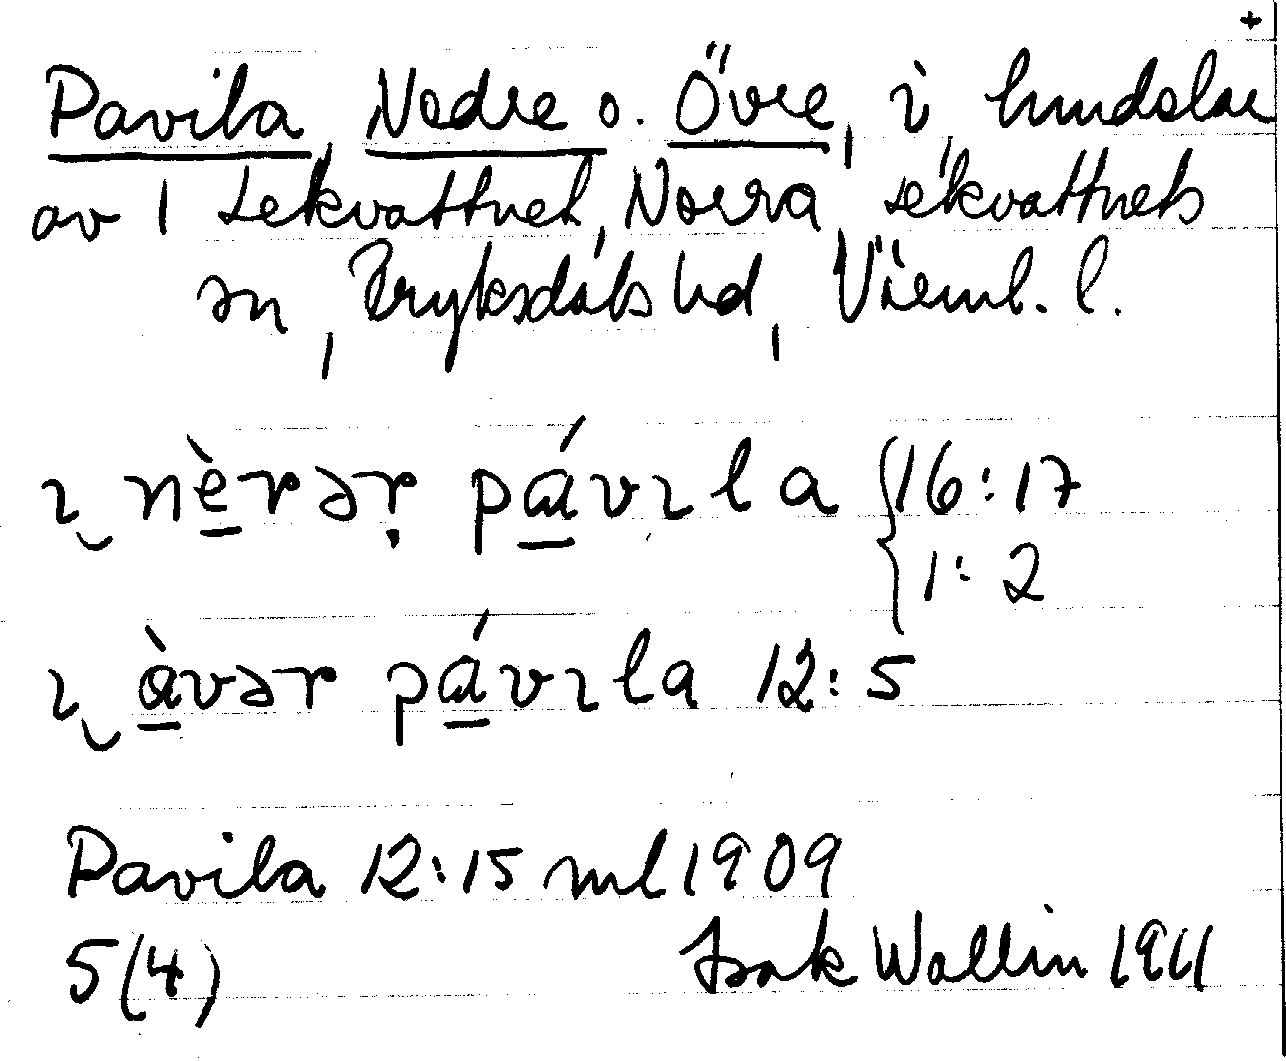 +
Pavila, Nedre o. Övre, i hundelar
av 1 Lekvattnet, Norra Lekvattnets
sn, Fryksdals hd, Värml. l.
ı̮ nèrər̩ pávıla {16:17
1:2
ı̮ àvər pávıla 12:5
Pavila 12:15 ml 1909
5(4)
Isak Wallin 1911